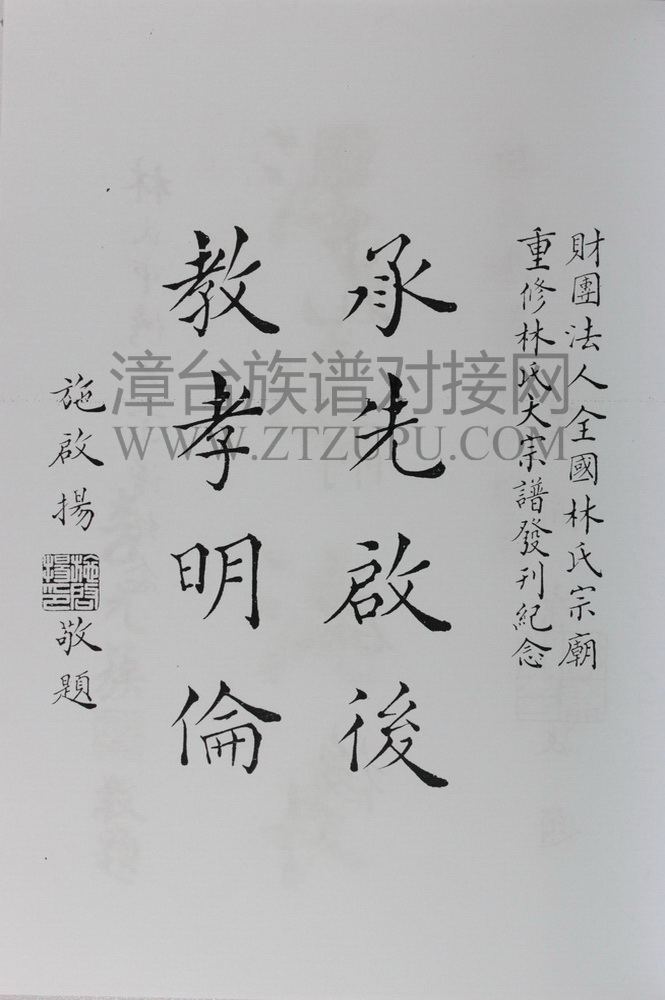 財團法人全國林氏宗廟
重修林氏大宗譜發刊紀念
承先啟後
教孝明倫
施啟揚
施啓揚印
敬題
漳台族谱对接网
WWW.ZTZUPU.COM